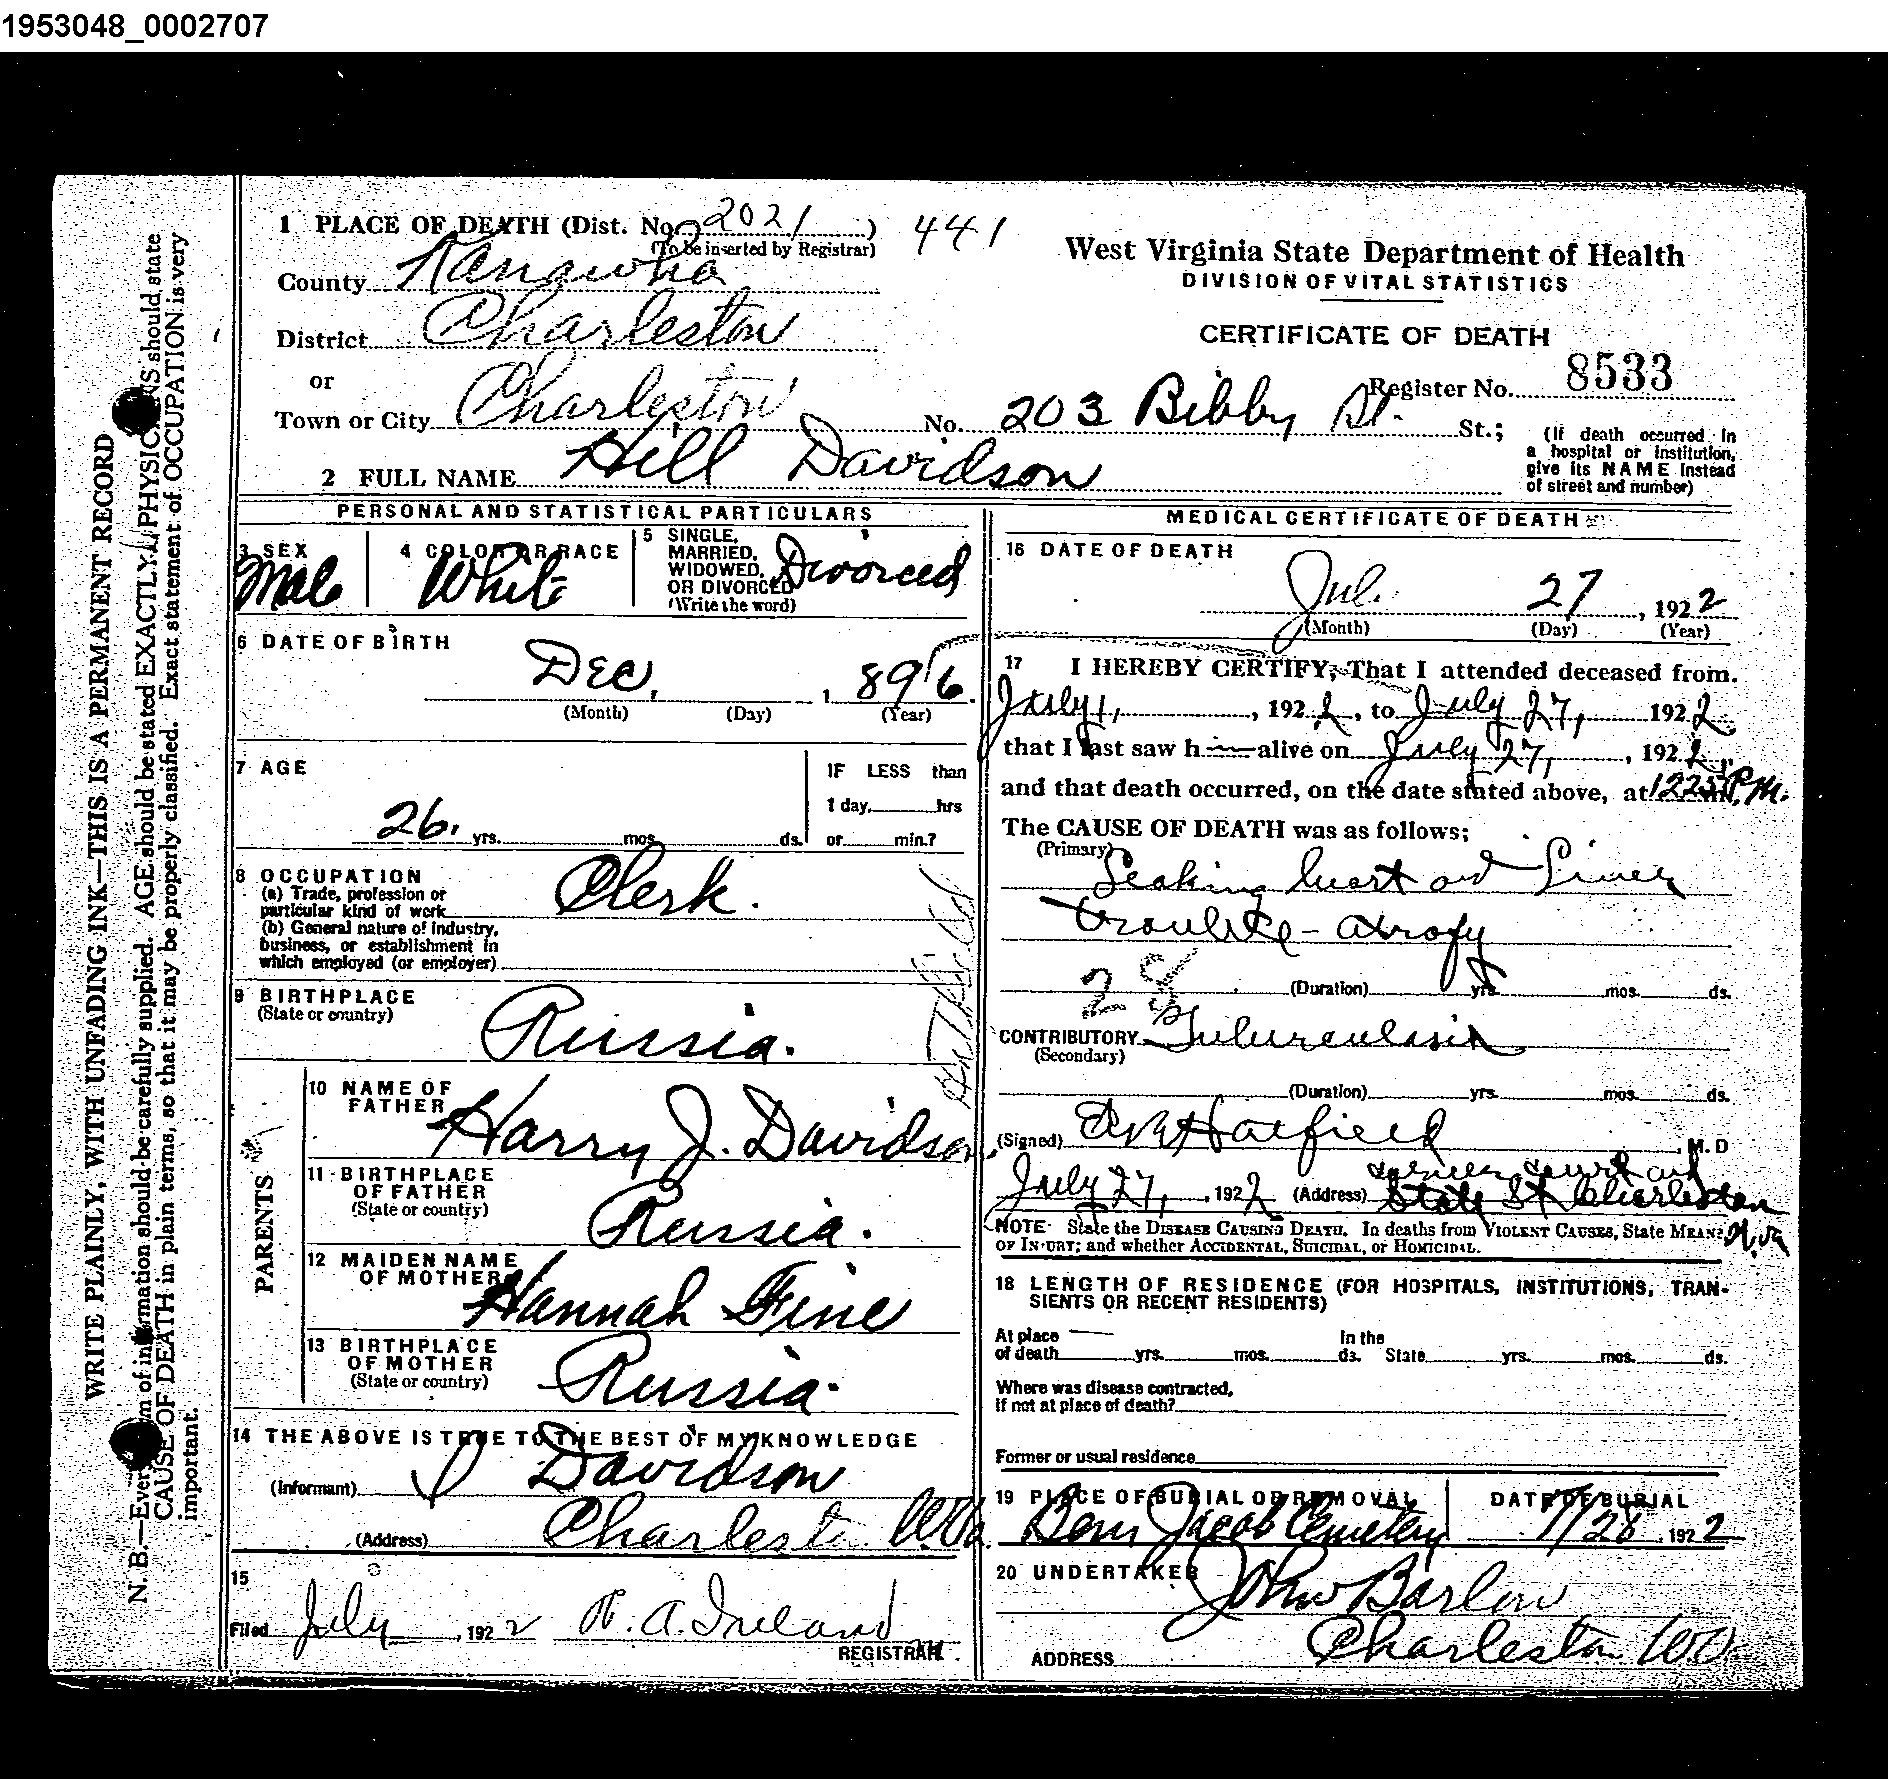 1953048_0002707
1 PLACE OF DEATH (Dist. No. 2021 ) 441
(To be inserted by Registrar)
County Kanawha
District Charleston
or
Town or City Charleston
West Virginia State Department of Health
DIVISION OF VITAL STATISTICS
CERTIFICATE OF DEATH
Register No. 8533
No. 203 Bibby St. St.;
(If death occurred in
a hospital or institution,
give its NAME instead
of street and number)
2 FULL NAME Hill Davidson
PERSONAL AND STATISTICAL PARTICULARS
3 SEX
Male
4 COLOR OR RACE
White
5 SINGLE,
MARRIED,
WIDOWED,
OR DIVORCED
(Write the word)
Divorced
6 DATE OF BIRTH
Dec. , 1896
(Month) (Day) (Year)
7 AGE
26. yrs. mos. ds.
IF LESS than
1 day, hrs
or min.?
8 OCCUPATION
(a) Trade, profession or
particular kind of work
Clerk.
(b) General nature of industry,
business, or establishment in
which employed (or employer)
9 BIRTHPLACE
(State or country)
Russia.
PARENTS
10 NAME OF
FATHER
Harry J. Davidson
11 BIRTHPLACE
OF FATHER
(State or country)
Russia.
12 MAIDEN NAME
OF MOTHER
Hannah Fine
13 BIRTHPLACE
OF MOTHER
(State or country)
Russia.
14 THE ABOVE IS TRUE TO THE BEST OF MY KNOWLEDGE
(Informant) J Davidson
(Address) Charleston W.Va.
15
Filed July , 1922
REGISTRAR
MEDICAL CERTIFICATE OF DEATH
16 DATE OF DEATH
Jul. 27 , 1922
(Month) (Day) (Year)
17 I HEREBY CERTIFY, That I attended deceased from.
July 1, , 1922, to July 27, 1922
that I last saw h alive on July 27, , 1922,
and that death occurred, on the date stated above, at P.M.
The CAUSE OF DEATH was as follows:
(Primary)
Leaking heart and Liver
trouble - atrofy
28 (Duration) yrs. mos. ds.
CONTRIBUTORY Tuberculasis
(Secondary)
(Duration) yrs. mos. ds.
(Signed) Hatfield , M. D
July 27, , 1922 (Address) State St Charleston
W.Va
NOTE: State the DISEASE CAUSING DEATH. In deaths from VIOLENT CAUSES, State MEANS
OF INJURY; and whether ACCIDENTAL, SUICIDAL, or HOMICIDAL.
18 LENGTH OF RESIDENCE (FOR HOSPITALS, INSTITUTIONS, TRAN-
SIENTS OR RECENT RESIDENTS)
At place
of death yrs. mos. ds.
In the
State yrs. mos. ds.
Where was disease contracted,
If not at place of death?
Former or usual residence
19 PLACE OF BURIAL OR REMOVAL
Jacob Cemetery
DATE OF BURIAL
7/28 , 1922
20 UNDERTAKER
John Barlow
ADDRESS Charleston WV
WRITE PLAINLY, WITH UNFADING INK—THIS IS A PERMANENT RECORD
N. B.—Every item of information should be carefully supplied. AGE should be stated EXACTLY. PHYSICIANS should state
CAUSE OF DEATH in plain terms, so that it may be properly classified. Exact statement of OCCUPATION is very
important.